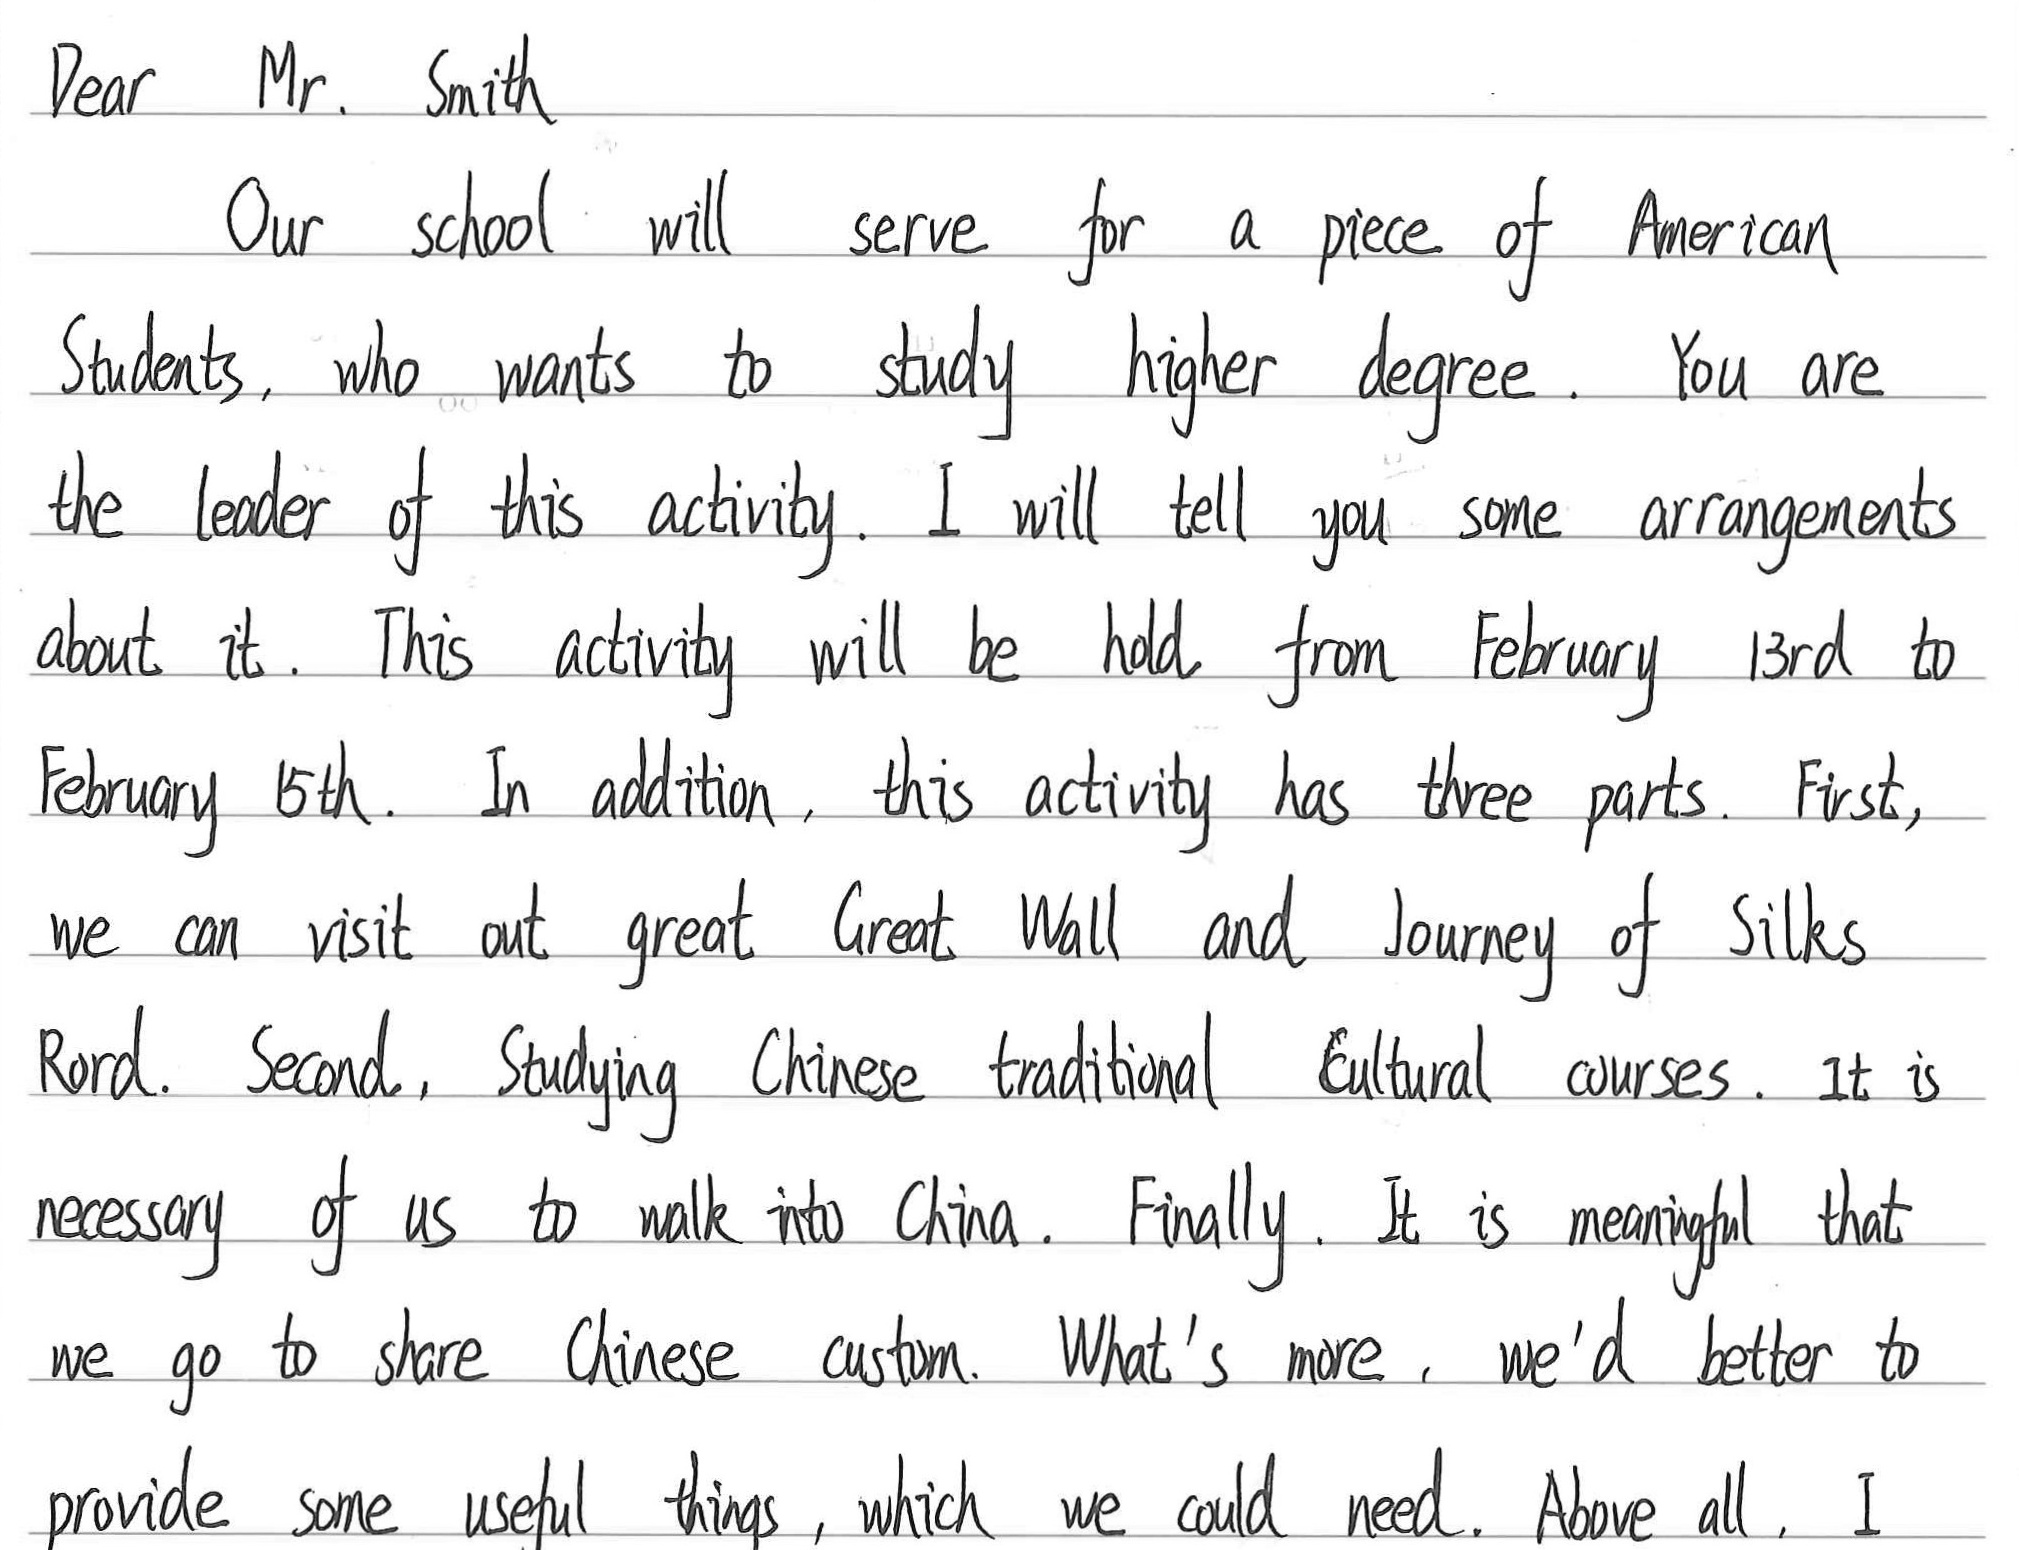 Dear Mr. Smith
Our school will serve for a piece of American
Students, who wants to study higher degree. You are
the leader of this activity. I will tell you some arrangements
about it. This activity will be hold from February 13rd to
February 15th. In addition, this activity has three parts. First,
we can visit out great Great Wall and Journey of Silks
Rord. Second, Studying Chinese traditional Cultural courses. It is
necessary of us to walk into China. Finally. It is meaningful that
we go to share Chinese custom. What's more, we'd better to
provide some useful things, which we could need. Above all, I